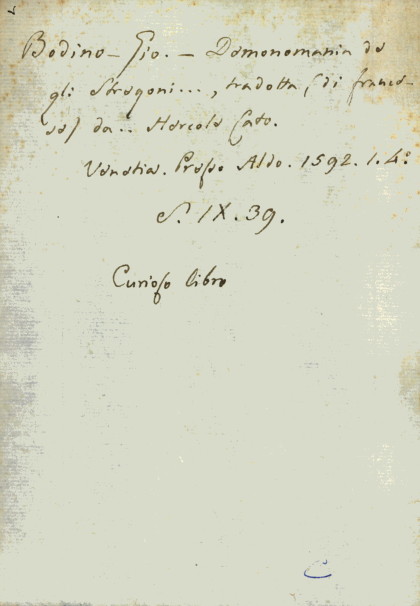 Bodino – Gio. – Demonomania de
gli Stregoni..., tradotta (di france-
se) da.. Hercole Cato.
Venetia. Presso Aldo. 1592. 1. 4°
S. IX. 39.
Curioso libro
C